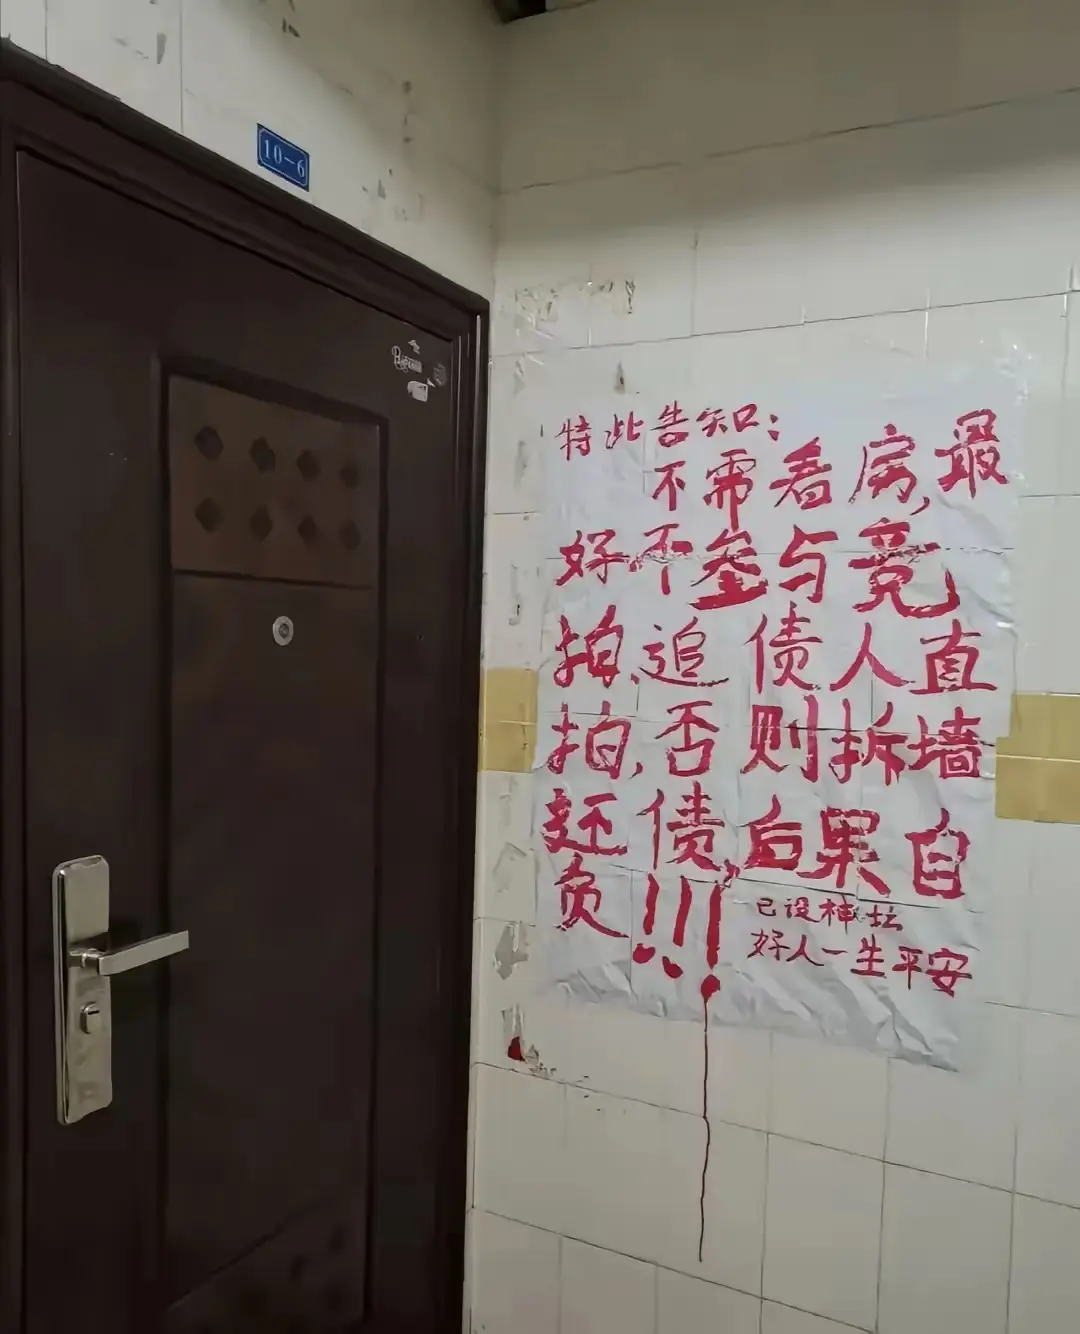 10-6
特此告知：
不需看房，最
好不参与竞
拍，追债人直
拍，否则拆墙
还债，后果自
负!!!
已设神坛
好人一生平安